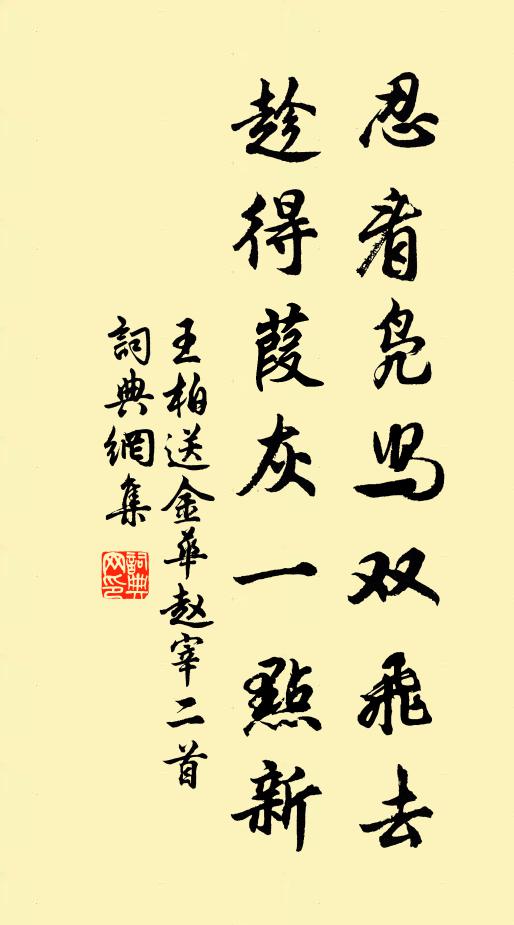 忍看凫舄双飛去
趁得葭灰一點新
王柏送金華赵宰二首
詞典網集
詞典网印